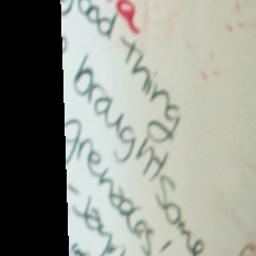 good thing
brought some
grenades!